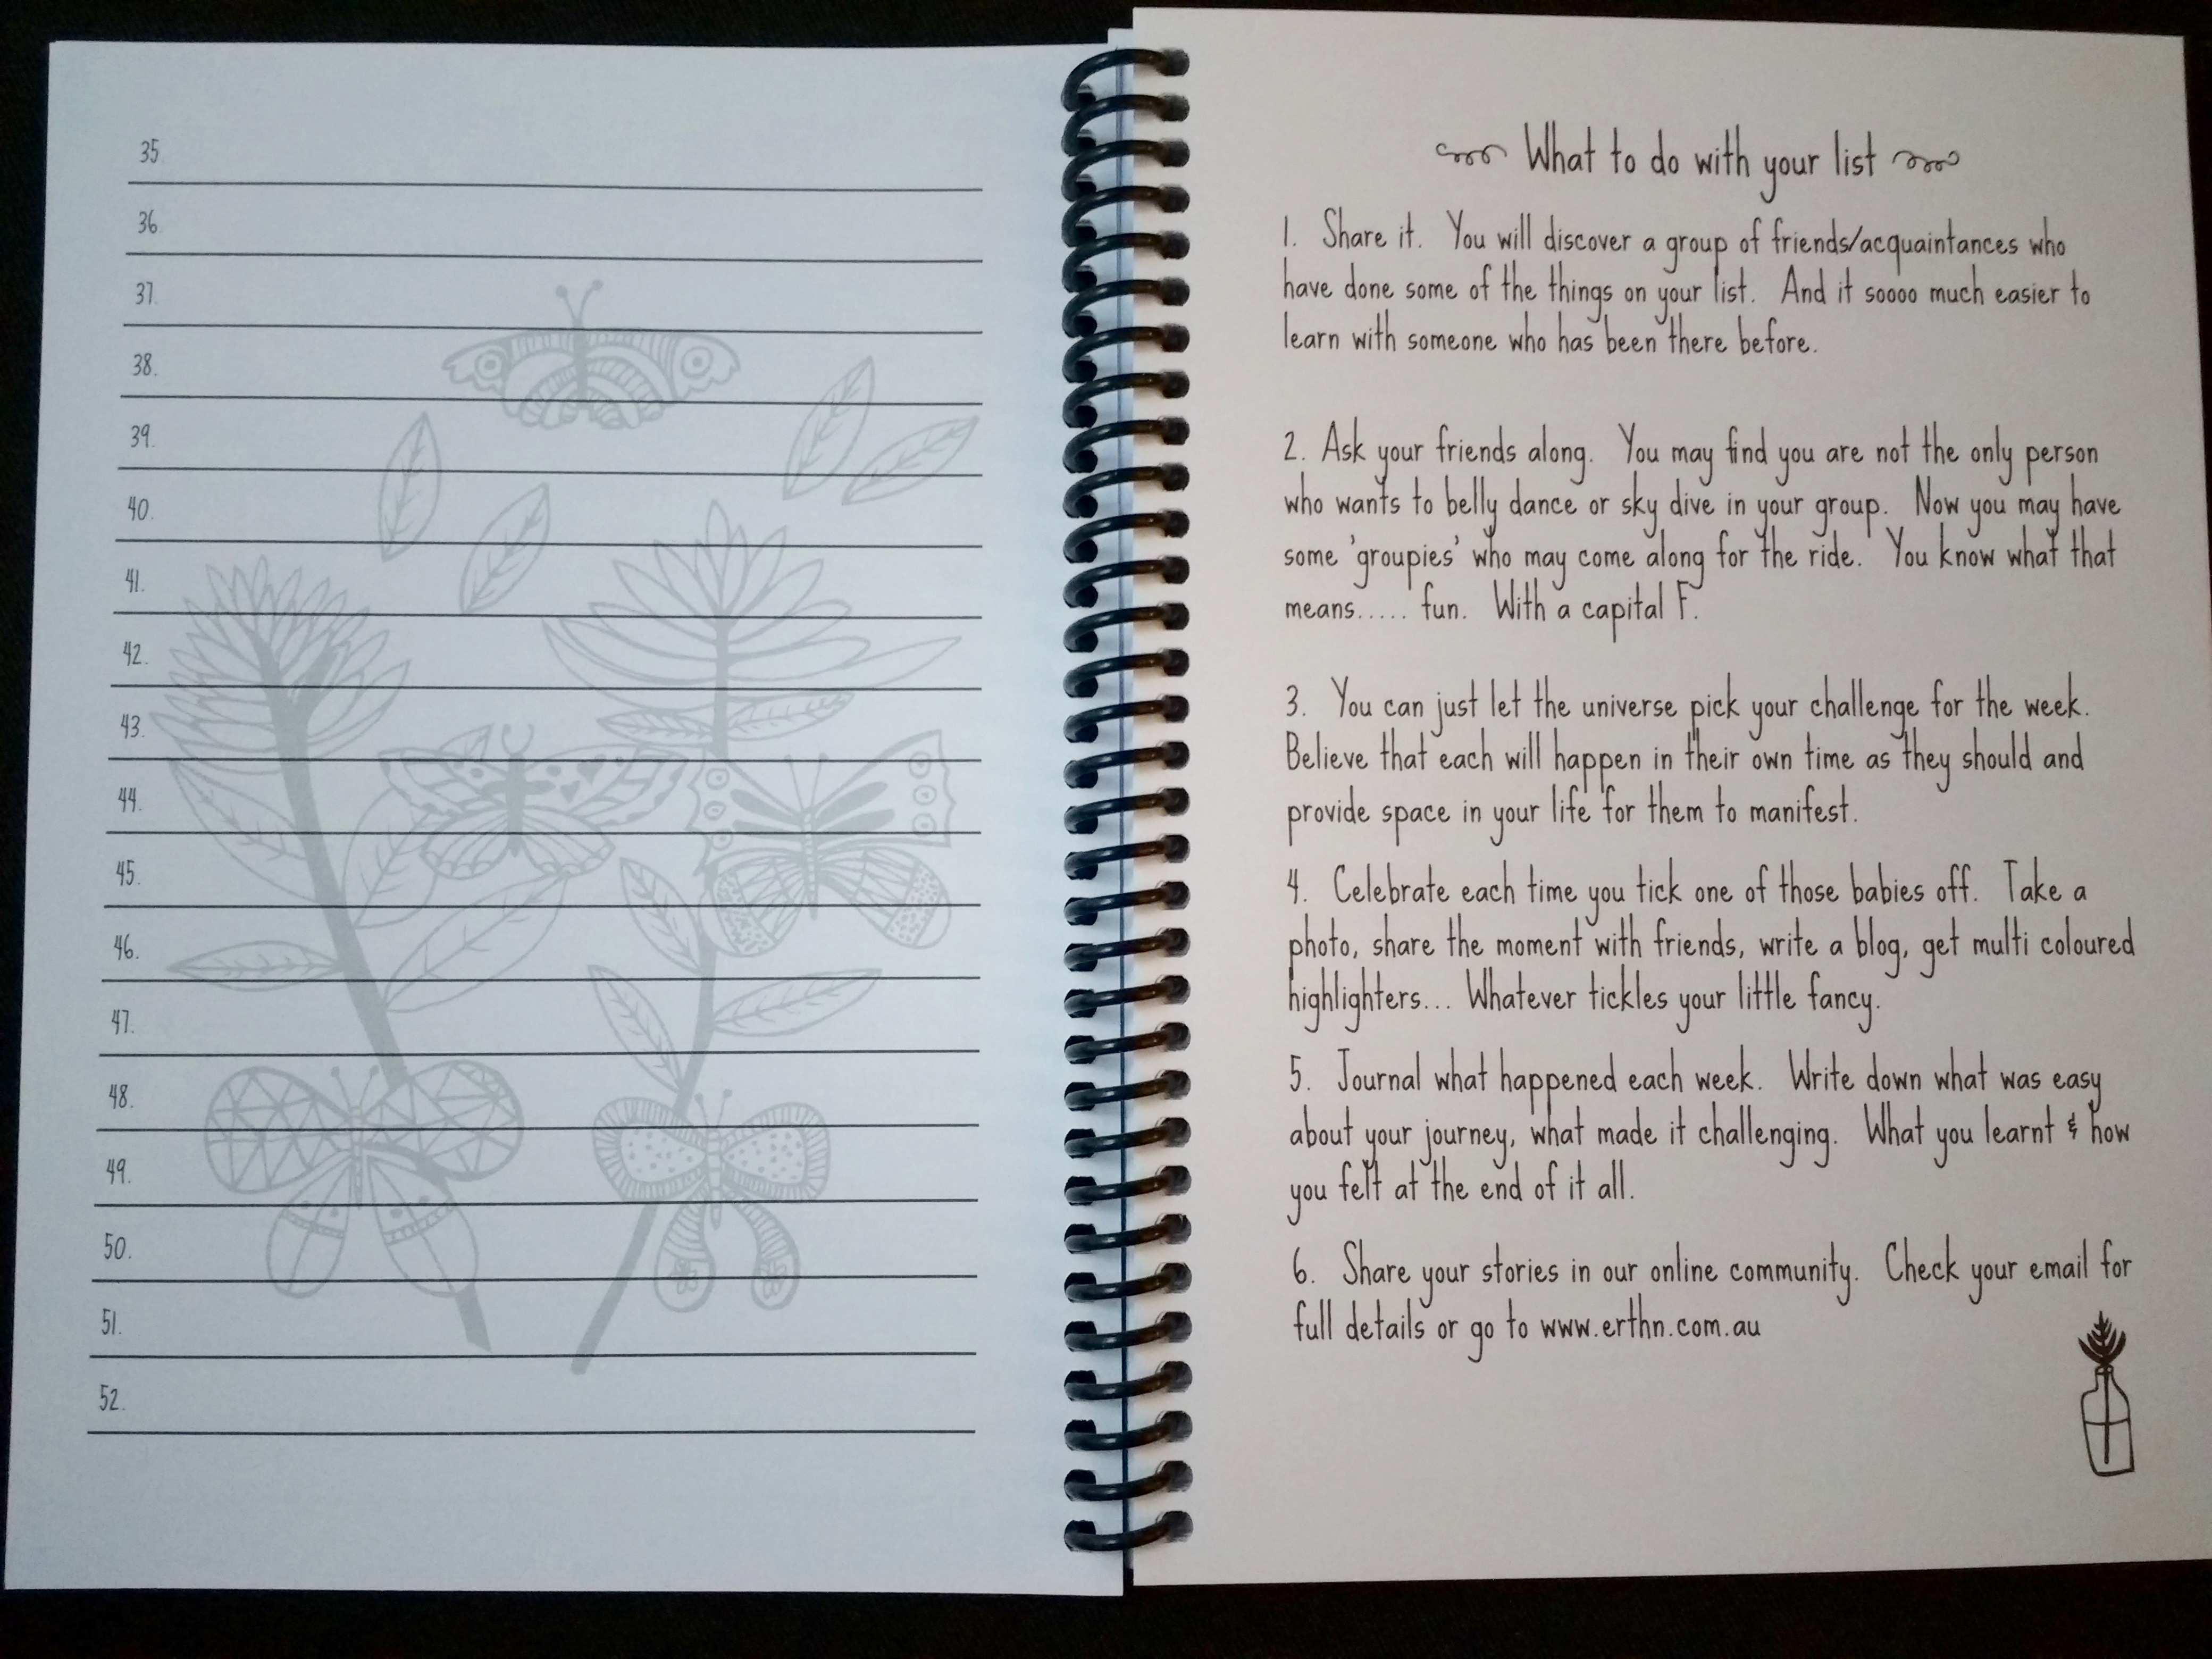 35.
36.
37.
38.
39.
40.
41.
42.
43.
44.
45.
46.
47.
48.
49.
50.
51.
52.
What to do with your list
1. Share it. You will discover a group of friends/acquaintances who
have done some of the things on your list. And it soooo much easier to
learn with someone who has been there before.
2. Ask your friends along. You may find you are not the only person
who wants to belly dance or sky dive in your group. Now you may have
some 'groupies' who may come along for the ride. You know what that
means..... fun. With a capital F.
3. You can just let the universe pick your challenge for the week.
Believe that each will happen in their own time as they should and
provide space in your life for them to manifest.
4. Celebrate each time you tick one of those babies off. Take a
photo, share the moment with friends, write a blog, get multi coloured
highlighters... Whatever tickles your little fancy.
5. Journal what happened each week. Write down what was easy
about your journey, what made it challenging. What you learnt & how
you felt at the end of it all.
6. Share your stories in our online community. Check your email for
full details or go to www.erthn.com.au